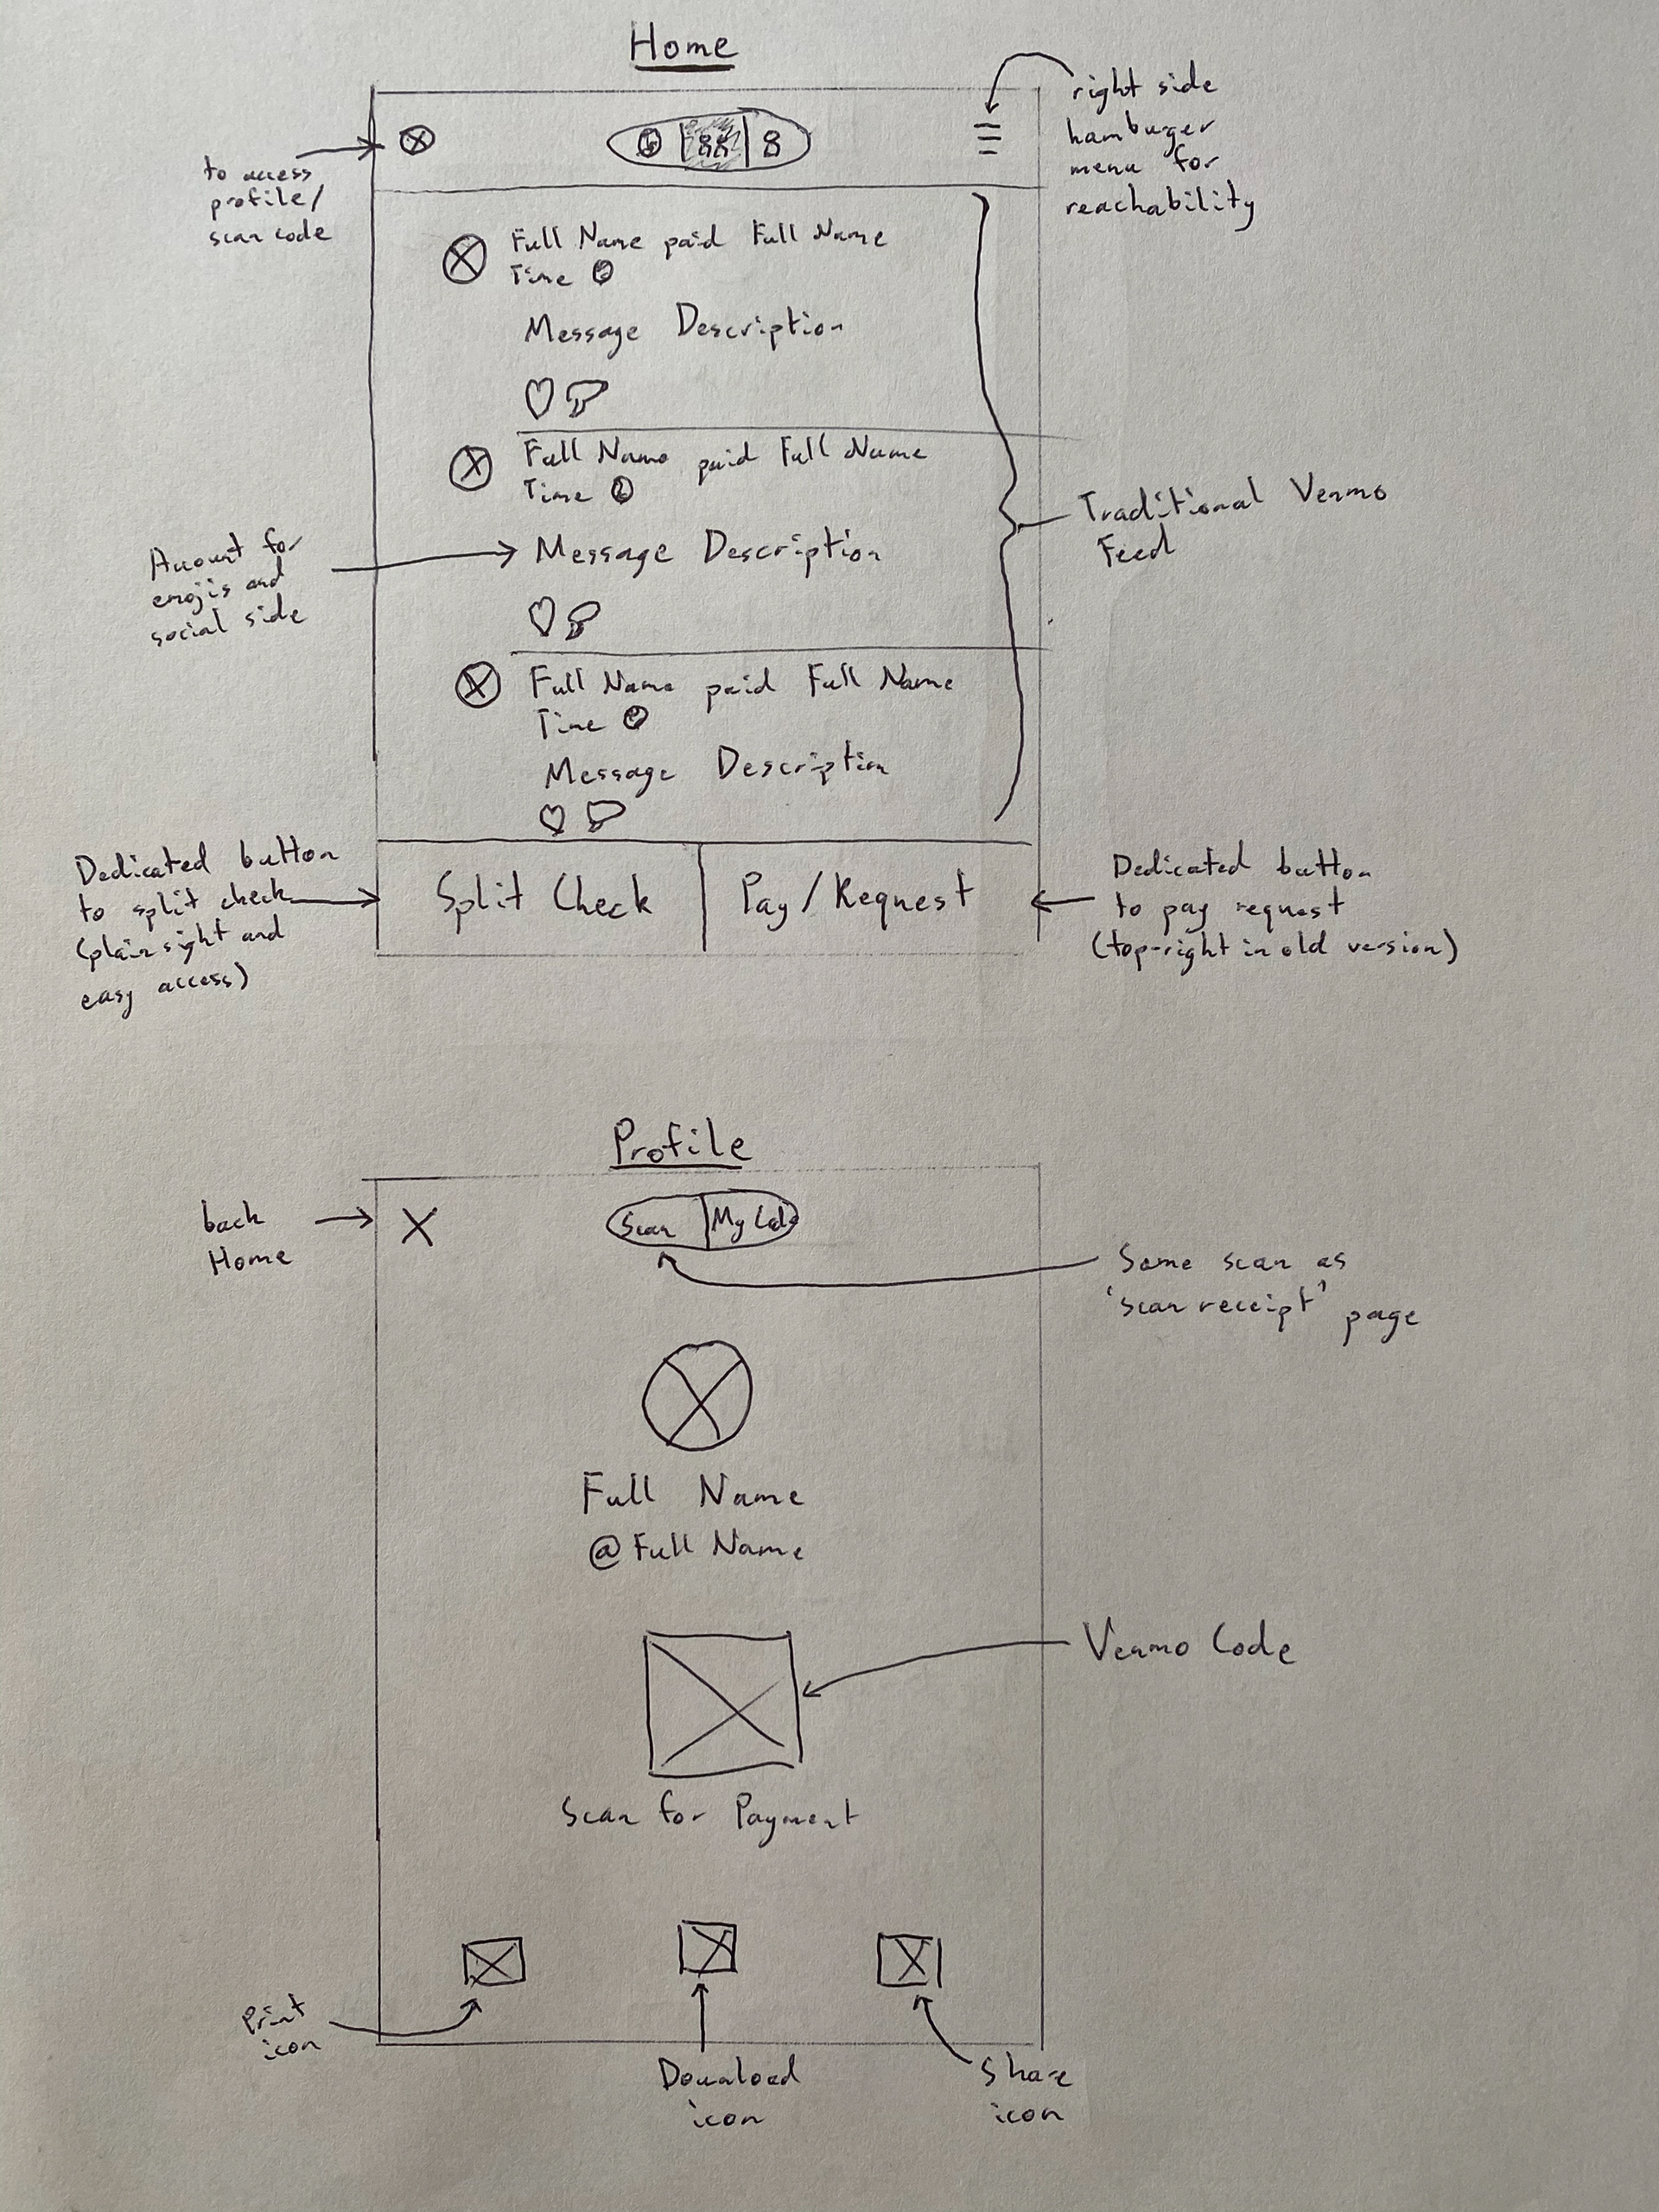 Home
right side
hamburger
menu for
reachability
to access
profile/
scan code
Full Name paid Full Name
Time
Message Description
Full Name paid Full Name
Time
Traditional Venmo
Feed
Account for
emojis and
social side
Message Description
Full Name paid Full Name
Time
Message Description
Dedicated button
to split check
(plain sight and
easy access)
Split Check
Pay/Request
Dedicated button
to pay request
(top-right in old version)
Profile
back
Home
X
Scan
My Code
Same scan as
'scan receipt' page
Full Name
@Full Name
Venmo Code
Scan for Payment
Print
icon
Download
icon
Share
icon